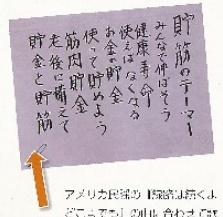 貯筋のテーマ
みんなで伸ばそう
健康寿命
使えばなくなる
お金の貯金
使って貯めよう
筋肉貯金
老後に備えて
貯金と貯筋
アメリカ民謡の「線路は続くよ
どこまでも」の曲に合わせて歌